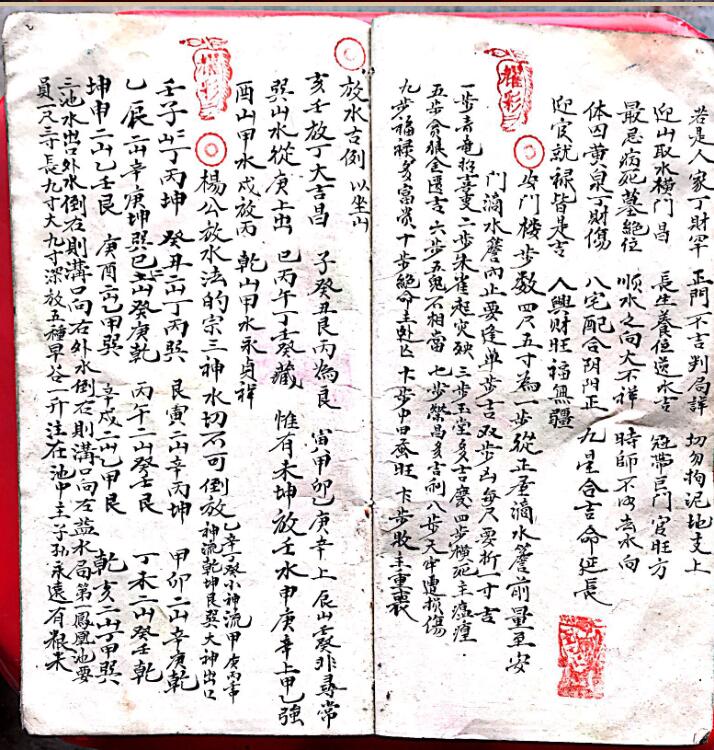 若是人家丁財罕 正門不吉判局詳 切勿拘泥地支上
迎山取水橫門昌 長生養位送水吉 冠帶巨門官旺方
最忌病死墓絕位 顺水之向大不祥 時師不昀去水向
体囚黄泉丁財傷 八宅配合阴阳正 九星合吉命延長
迎官就禄皆是吉 人興财旺福無疆
耀彩
安門楼步数 四尺五寸為一步 從正屋滴水簷前量至安
門滴水簷內止 要逢单步吉 双步凶 每尺零折一寸吉
一步青竜招喜重 二步朱雀起灾殃 三步玉堂多吉慶 四步横死主瘟𤺥
五步貪狼金匱吉 六步五鬼不相當 七步榮昌多吉利 八步天牢遭損傷
九步福禄多富貴 十步絕命主
放水吉倒 以坐山
亥壬放丁大吉昌 子癸丑艮丙為良 寅甲卯乙庚辛上 辰山壬癸非尋常
巽山水從庚上出 巳丙午丁壬癸藏 惟有未坤放壬水 申庚辛上甲乙強
酉山甲水戍放丙 乾山甲水永貞祥
耀彩
楊公放水法的宗三神水切不可倒放 乙辛丁癸小神流 甲庚丙壬中
神流 乾坤艮巽大神出口
壬子二山丁丙坤 癸丑二山丁丙巽 艮寅二山辛丙坤 甲卯二山辛庚乾
乙辰二山辛庚坤 巽巳二山癸庚乾 丙午二山癸壬艮 丁未二山癸壬乾
坤申二山乙壬艮 庚酉二山乙甲巽 辛戍二山乙甲艮 乾亥二山丁甲巽
三池水出口外水倒右則溝口向右外水倒左則溝口向左益水局第一鳳凰池要
員一尺二寸長九寸大九寸深放五種早谷一升注在池中主子孙永遠有粮未